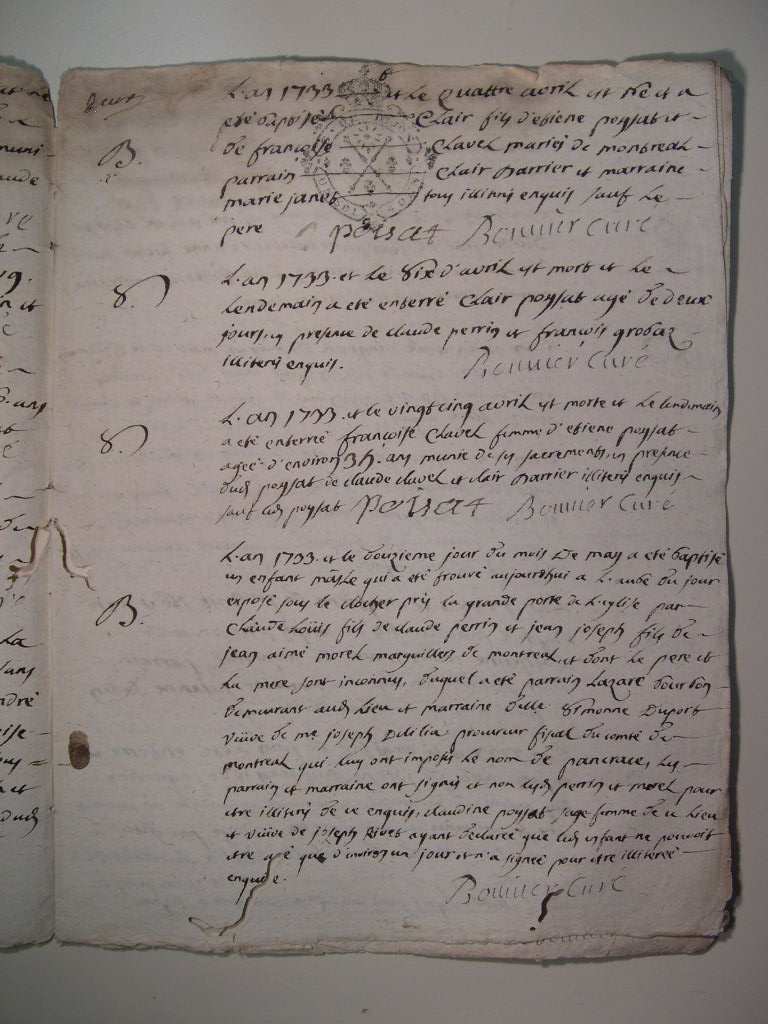 L'an 1733 et le quattre avril est né et a
eté baptisé Clair fils d'etiene poysat et
de françoise Clavel mariés de montreal
parrain Clair Barrier et marraine
marie janet tous illiterés enquis sauf le
pere poisat Bonnier Curé
B.
L'an 1733. et le six d'avril est mort et le
lendemain a eté enterré Clair poysat agé de deux
jours en presence de claude perrin et françois grobaz
illiterés enquis. Bonnier Curé
S.
L'an 1733. et le vingt cinq avril est morte et le lendemain
a eté enterré françoise Clavel femme d'etiene poysat
ageé d'environ 35. ans munie de ses sacrements en presence
dud. poysat de claude clavel et clair Barrier illiterés enquis
sauf led. poysat poisat Bonnier Curé
S.
L'an 1733. et le douzieme jour du mois De may a eté baptisé
un enfant mâsle qui a eté trouvé aujourdhui a L'aube du jour
exposé sous le clocher prés la grande porte de L'eglise par
Claude Loüis fils de claude perrin et jean joseph fils de
jean aimé morel marguilliers de montreal, et dont le pere et
La mere sont inconnus, duquel a eté parrain Lazare bourbon
demeurant aud. Lieu et marraine delle simonne Duport
veüve de me joseph Delilia procureur fiscal du comté de
montreal qui luy ont imposés le nom de pancrace, les
parrain et marraine ont signés et non lesd. perrin et morel pour
etre illiterés de ce enquis, claudine poysat sage femme de ce Lieu
et veüve de joseph Rivet ayant declareé que led. enfant ne pouvoit
etre agé que d'environ un jour et n'a signeé pour etre illitereé
enquise. Bonnier Curé
B.